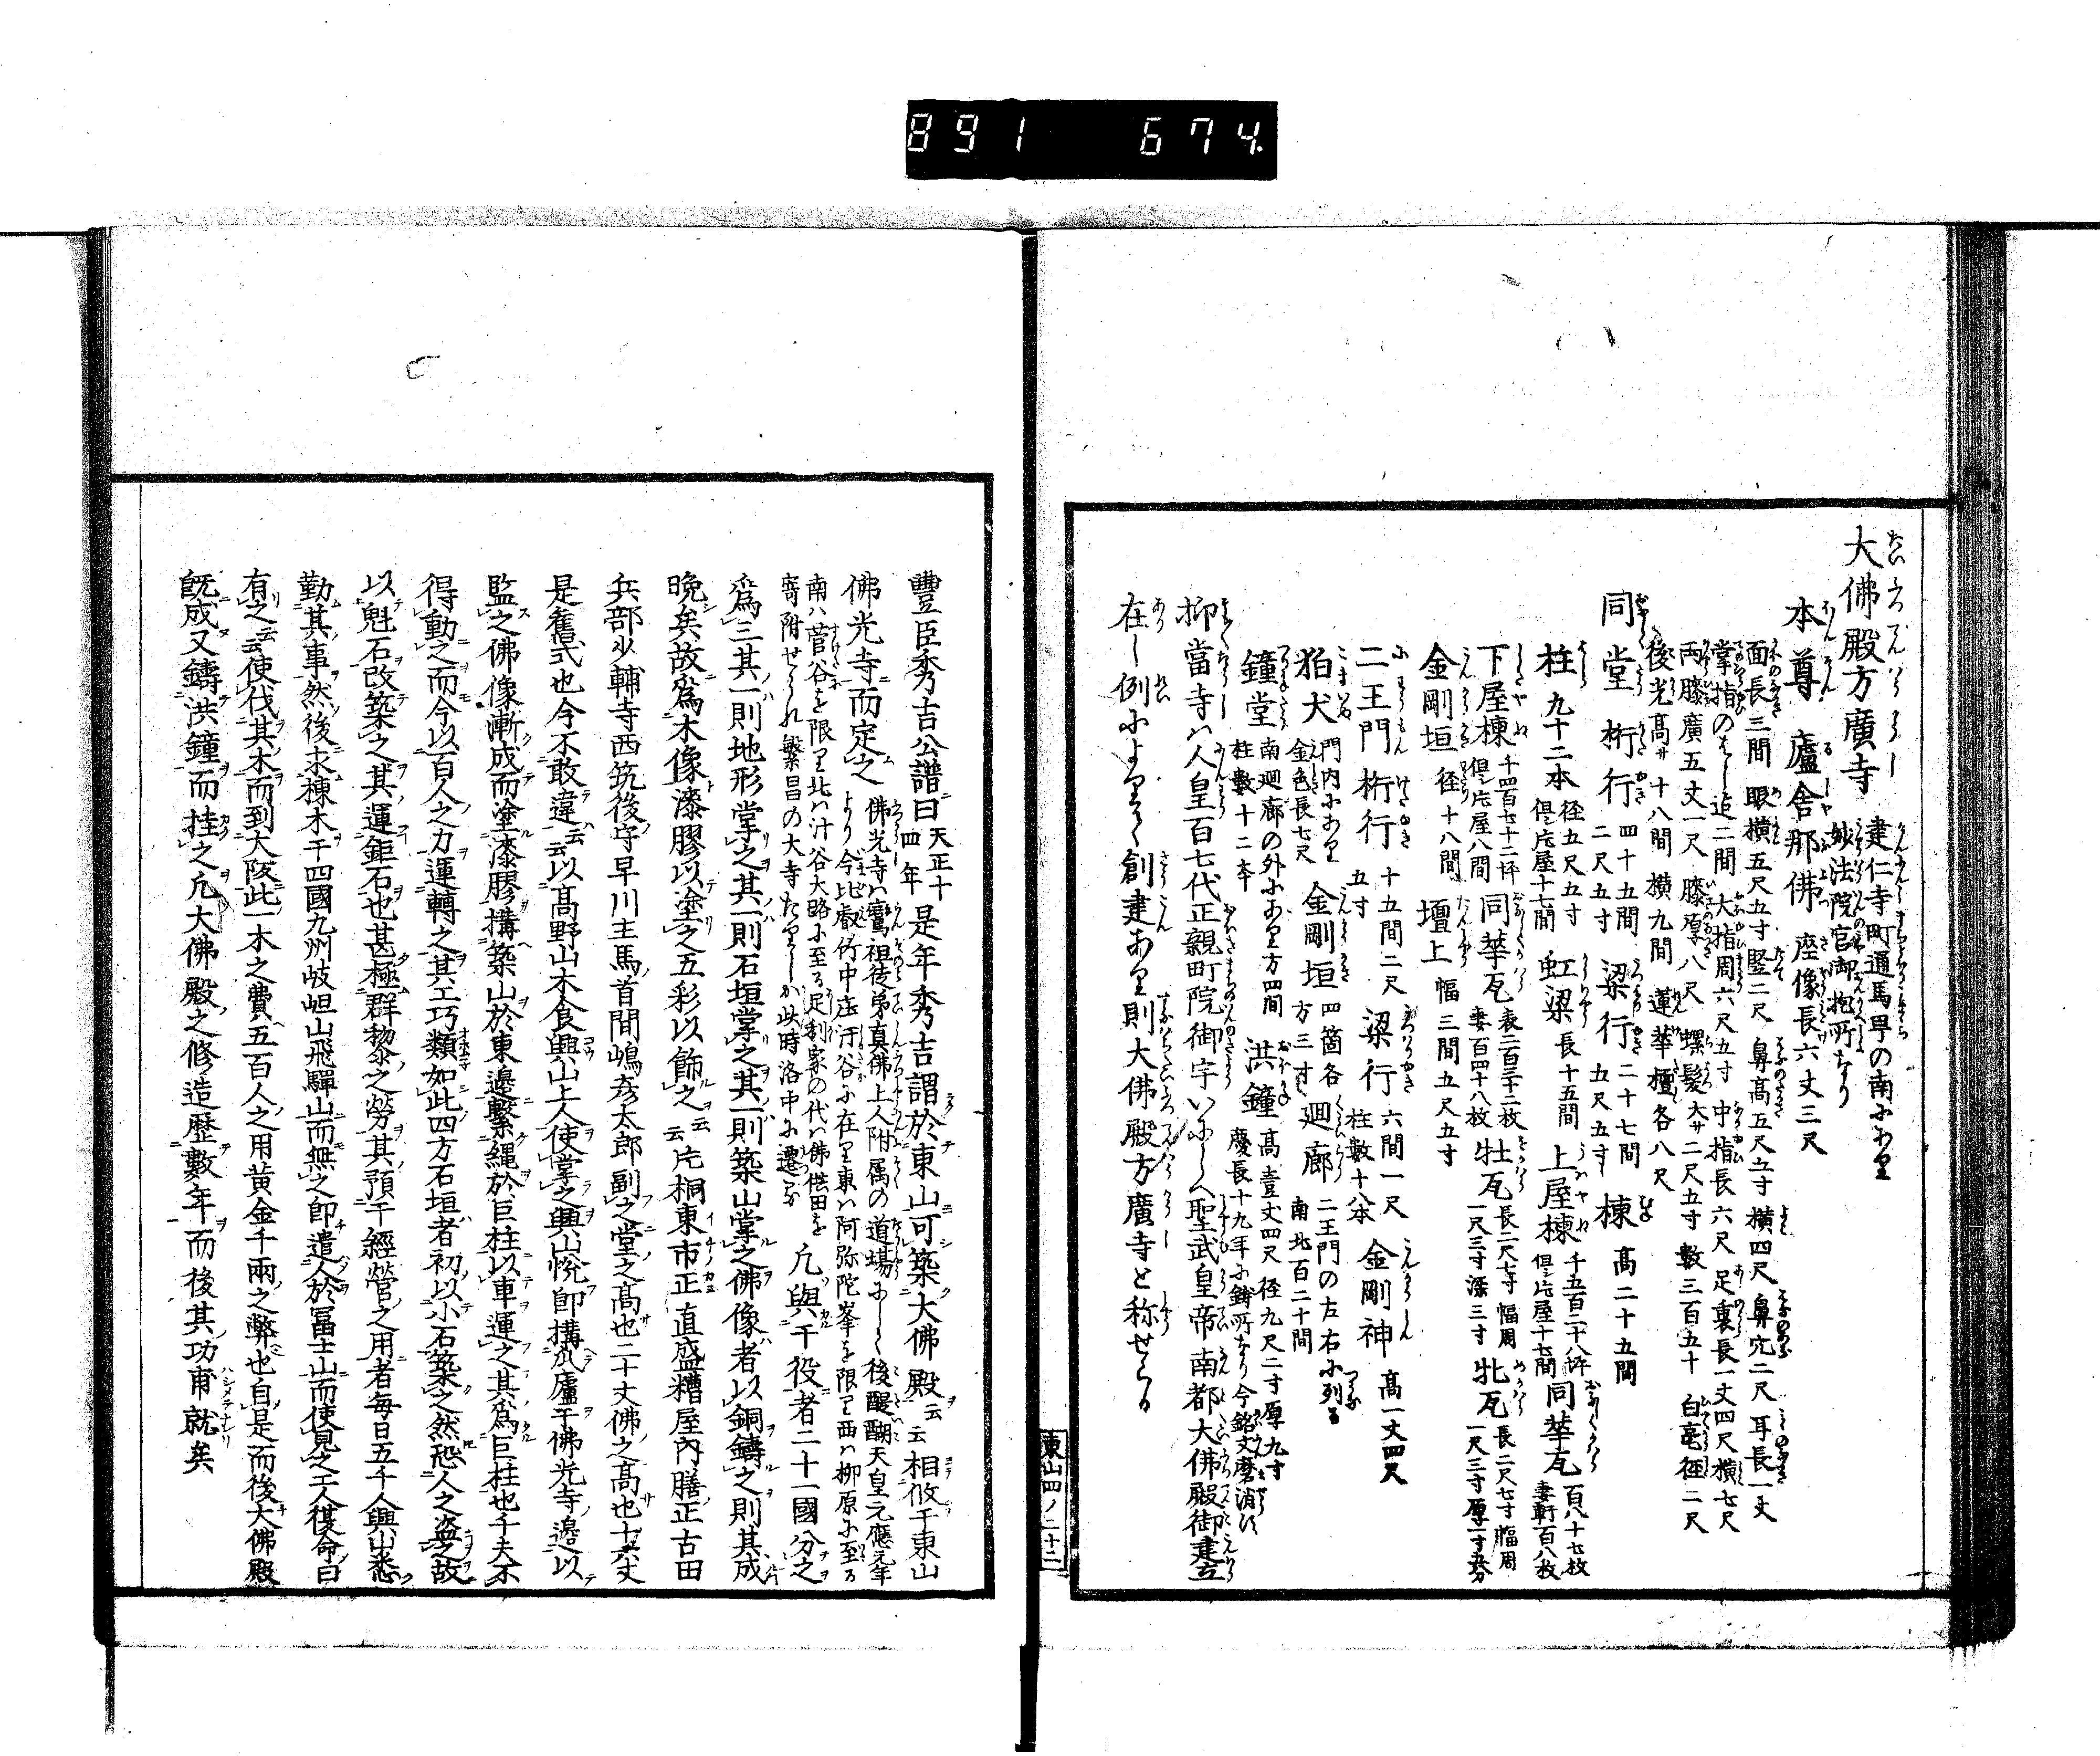 891 674.
大佛殿方廣寺 建仁寺町通馬町の南にあり
妙法院宮御抱所なり
本尊 盧舎那佛 座像長六丈三尺
面長三間 眼横五尺五寸竪二尺 鼻高五尺五寸 横四尺 鼻穴二尺 耳長一丈
掌指のはし迄二間 大指周六尺五寸 中指長六尺 足裏長一丈四尺 横七尺
両膝廣五丈一尺 膝厚八尺 螺髪大サ二尺五寸 數三百五十 白毫径二尺
後光高サ十八間 横九間 蓮華檀各八尺
同堂 桁行 四十五間二尺五寸 梁行 二十七間五尺五寸 棟 高二十五間
柱 九十二本 径五尺五寸 但シ片屋十七間 虹梁 長十五間 上屋棟 千五百二十八坪 但シ片屋十七間 同華瓦 百八十七枚 妻軒百八枚
下屋棟 千四百七十二坪 但シ片屋八間 同華瓦 表二百三十二枚 妻百四十八枚 牡瓦 長二尺七寸 幅周一尺三寸 深三寸 牝瓦 長二尺七寸 幅周一尺三寸 厚一寸五分
金剛垣 径十八間 壇上 幅三間五尺五寸
二王門 桁行 十五間二尺五寸 梁行 六間一尺 柱數十八本 金剛神 高一丈四尺
狛犬 門内にあり 金色長七尺 金剛垣 四箇各方三寸 廻廊 二王門の左右に列る 南北百二十間
鐘堂 南廻廊の外にあり方四間 柱數十二本 洪鐘 高壹丈四尺 径九尺二寸厚九寸 慶長十九年に鋳所なり今銘文磨消す
抑當寺ハ人皇百七代正親町院御宇いにしへ聖武皇帝南都大佛殿御建立
在し例によりて創建あり則大佛殿方廣寺と称せらる
東山四ノ二十二
豐臣秀吉公譜曰 天正十四年 是年秀吉謂於東山可築大佛殿云云相攸于東山
佛光寺而定之 佛光寺ハ鸞祖徒弟真佛上人附属の道場にして後醍醐天皇元應元年
より今比叡竹中庄汗谷に在り東ハ阿弥陀峯を限り西ハ柳原に至る
南ハ菅谷を限り北ハ汁谷大路に至る足利家の代ハ佛供田を
寄附せられ繁昌の大寺たりしか此時洛中に遷す 凡與于役者二十一國分之
爲三其一則地形掌之其一則石垣掌之其一則築山掌之佛像者以銅鑄之則其成
晩矣故爲木像漆膠以塗之五彩以飾之云云片桐東市正直盛糟屋内膳正古田
兵部少輔寺西筑後守早川主馬首間嶋彦太郎副之堂之高也二十丈佛之高也十六丈
是舊式也今不敢違云云以髙野山木食興山上人使掌之興山悦卽搆成廬于佛光寺邊以
監之佛像漸成而塗漆膠搆築山於東邊繋繩於巨柱以車運之其爲巨柱也千夫不
得動之而今以百人之力運轉之其工巧類如此四方石垣者初以小石築之然恐人之盗之故
以魁石改築之其運鉅石也甚極群物命之勞其預于經營之用者每日五千人興山悉
勤其事然後求棟木于四國九州岐岨山飛驒山而無之卽遣人於冨士山而使見之工人復命曰
有之云使伐其木而到大阪此一木之費五百人之用黄金千兩之弊也自是而後大佛殿
既成又鑄洪鐘而挂之凡大佛殿之修造歴數年而後其功甫就矣